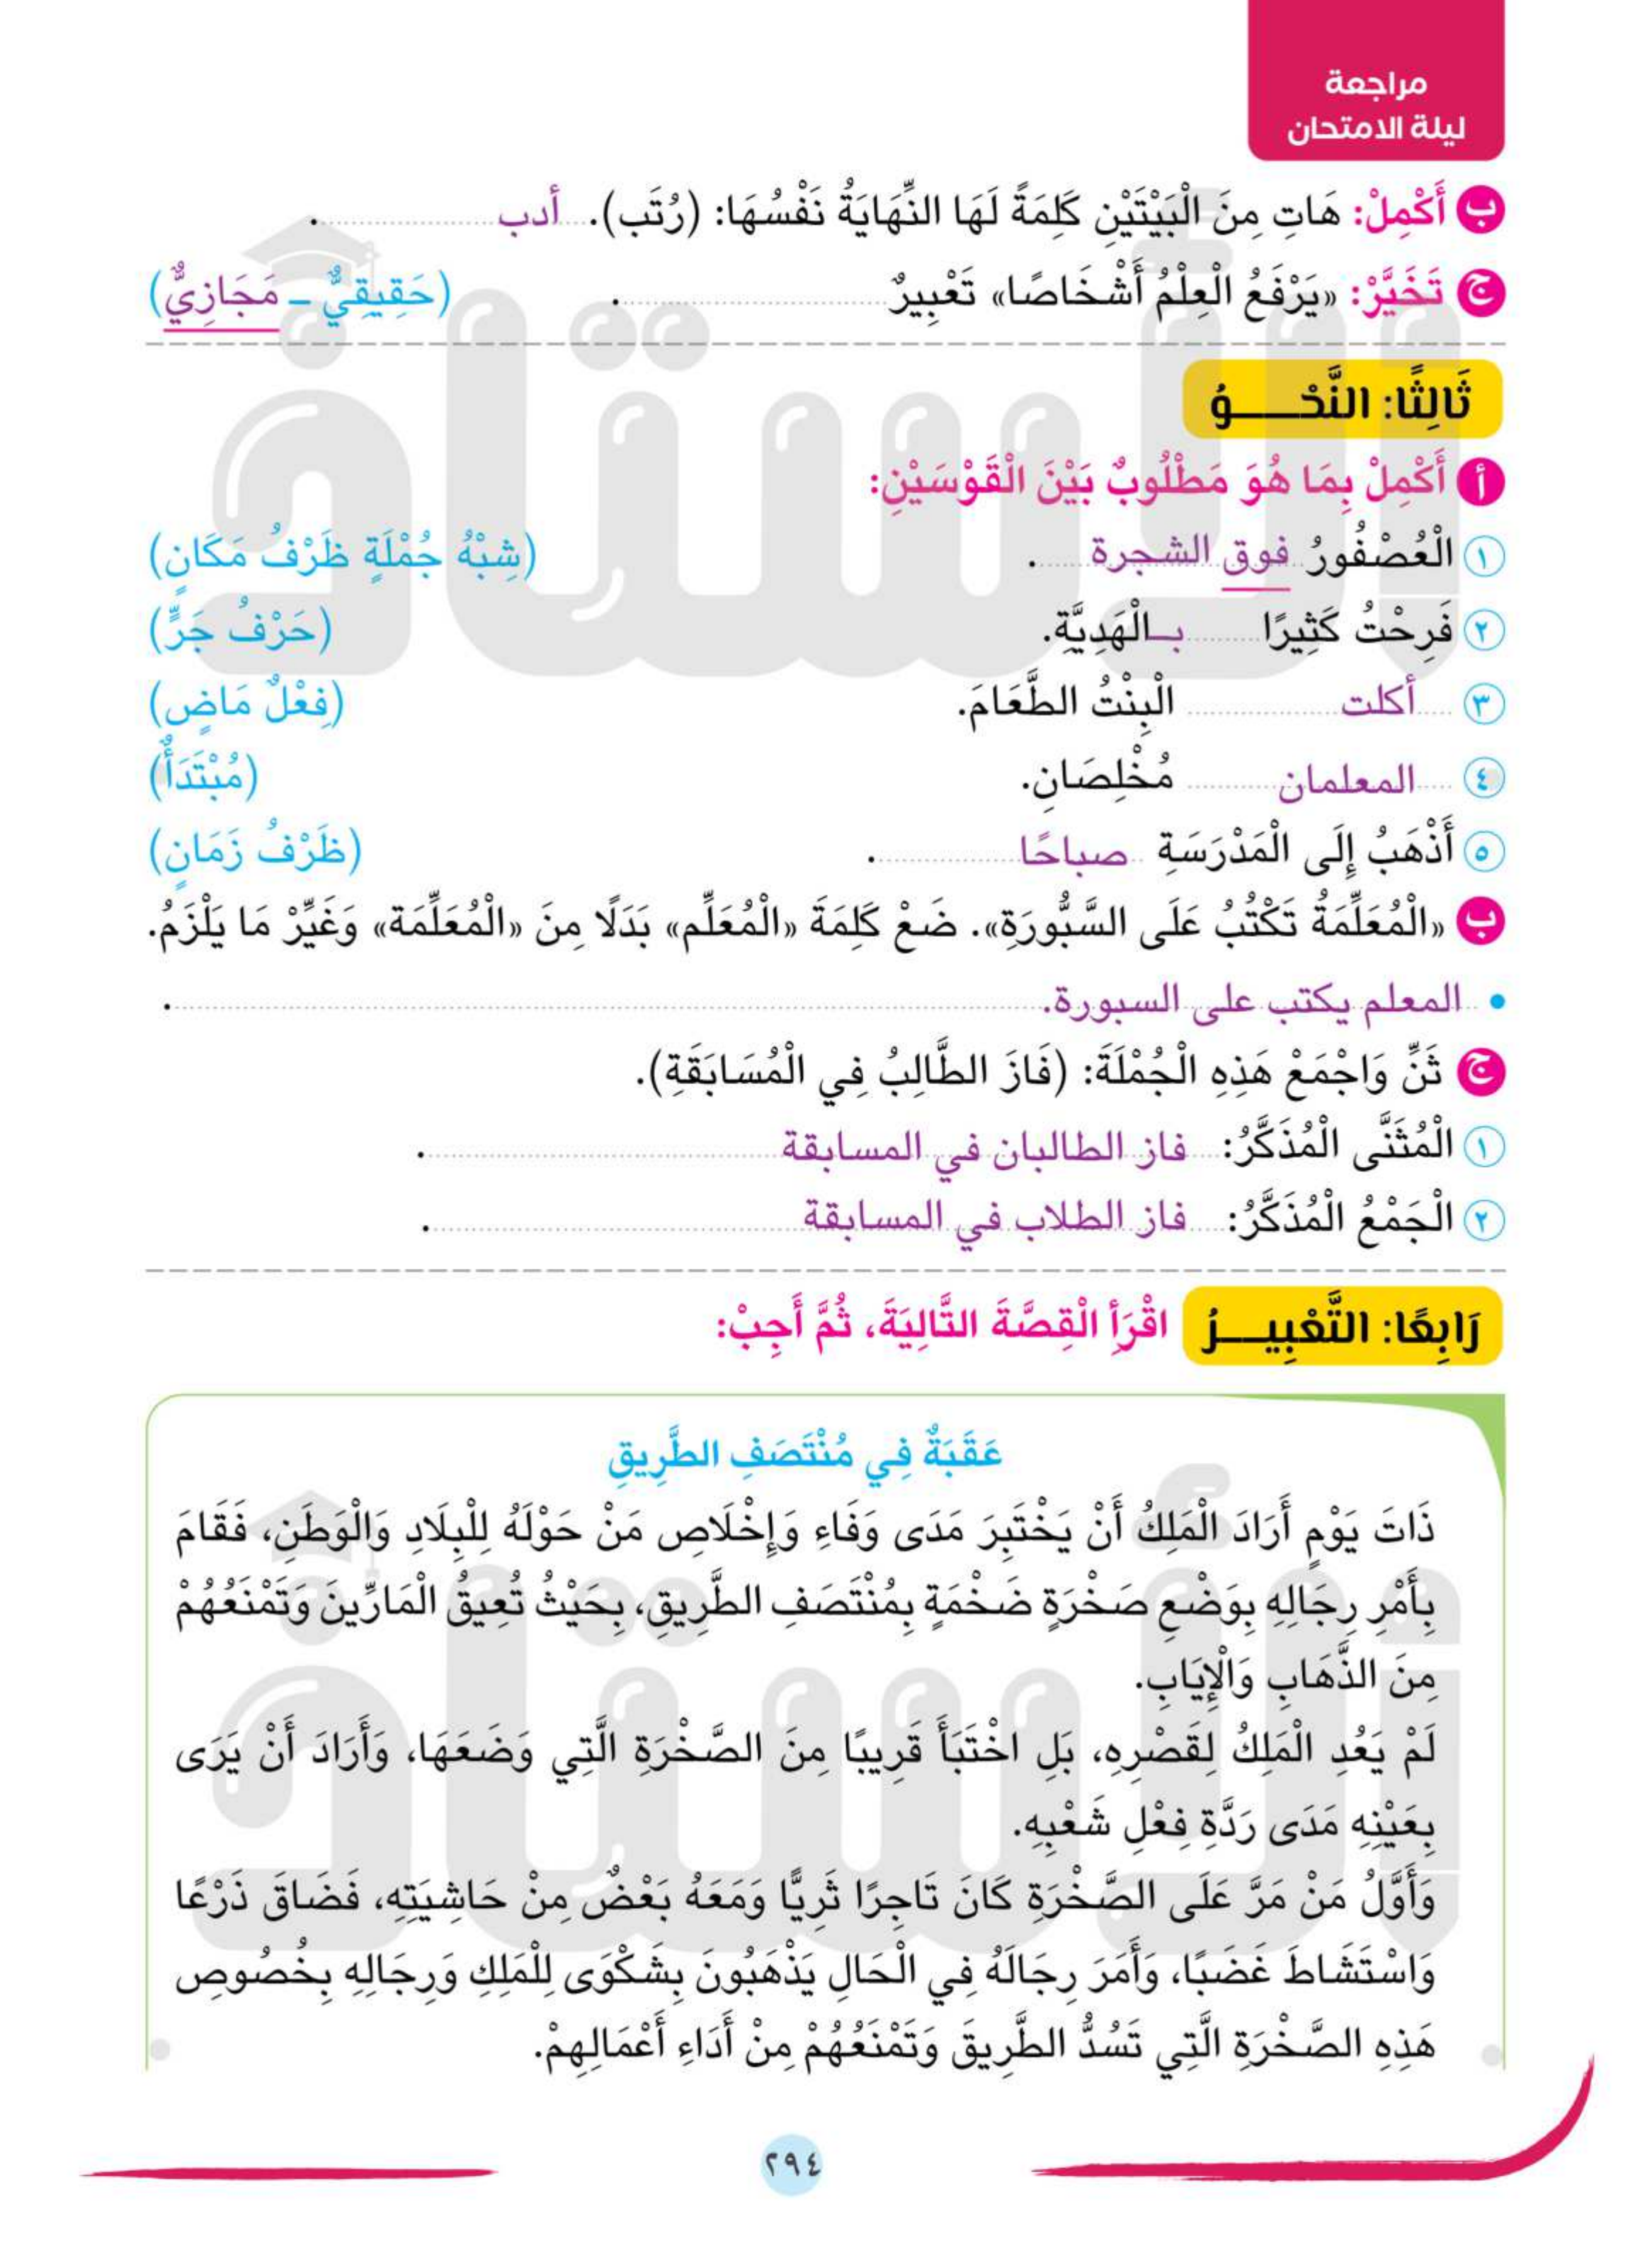 مراجعة
ليلة الامتحان
ب أَكْمِلْ: هَاتِ مِنَ الْبَيْتَيْنِ كَلِمَةً لَهَا النِّهَايَةُ نَفْسُهَا: (رُتَب). أدب .
ج تَخَيَّرْ: «يَرْفَعُ الْعِلْمُ أَشْخَاصًا» تَعْبِيرٌ . (حَقِيقِيٌّ – مَجَازِيٌّ)
ثَالِثًا: النَّحْـــوُ
أ أَكْمِلْ بِمَا هُوَ مَطْلُوبٌ بَيْنَ الْقَوْسَيْنِ:
١ الْعُصْفُورُ فوق الشجرة . (شِبْهُ جُمْلَةٍ ظَرْفُ مَكَانٍ)
٢ فَرِحْتُ كَثِيرًا بـالْهَدِيَّةِ. (حَرْفُ جَرٍّ)
٣ أكلت الْبِنْتُ الطَّعَامَ. (فِعْلٌ مَاضٍ)
٤ المعلمان مُخْلِصَانِ. (مُبْتَدَأٌ)
٥ أَذْهَبُ إِلَى الْمَدْرَسَةِ صباحًا . (ظَرْفُ زَمَانٍ)
ب «الْمُعَلِّمَةُ تَكْتُبُ عَلَى السَّبُّورَةِ». ضَعْ كَلِمَةَ «الْمُعَلِّم» بَدَلًا مِنَ «الْمُعَلِّمَة» وَغَيِّرْ مَا يَلْزَمُ.
• المعلم يكتب على السبورة. .
ج ثَنِّ وَاجْمَعْ هَذِهِ الْجُمْلَةَ: (فَازَ الطَّالِبُ فِي الْمُسَابَقَةِ).
١ الْمُثَنَّى الْمُذَكَّرُ: فاز الطالبان في المسابقة .
٢ الْجَمْعُ الْمُذَكَّرُ: فاز الطلاب في المسابقة .
رَابِعًا: التَّعْبِيـــرُ اقْرَأِ الْقِصَّةَ التَّالِيَةَ، ثُمَّ أَجِبْ:
عَقَبَةٌ فِي مُنْتَصَفِ الطَّرِيقِ
ذَاتَ يَوْمٍ أَرَادَ الْمَلِكُ أَنْ يَخْتَبِرَ مَدَى وَفَاءِ وَإِخْلَاصِ مَنْ حَوْلَهُ لِلْبِلَادِ وَالْوَطَنِ، فَقَامَ
بِأَمْرِ رِجَالِهِ بِوَضْعِ صَخْرَةٍ ضَخْمَةٍ بِمُنْتَصَفِ الطَّرِيقِ، بِحَيْثُ تُعِيقُ الْمَارِّينَ وَتَمْنَعُهُمْ
مِنَ الذَّهَابِ وَالْإِيَابِ.
لَمْ يَعُدِ الْمَلِكُ لِقَصْرِهِ، بَلِ اخْتَبَأَ قَرِيبًا مِنَ الصَّخْرَةِ الَّتِي وَضَعَهَا، وَأَرَادَ أَنْ يَرَى
بِعَيْنِهِ مَدَى رَدَّةِ فِعْلِ شَعْبِهِ.
وَأَوَّلُ مَنْ مَرَّ عَلَى الصَّخْرَةِ كَانَ تَاجِرًا ثَرِيًّا وَمَعَهُ بَعْضٌ مِنْ حَاشِيَتِهِ، فَضَاقَ ذَرْعًا
وَاسْتَشَاطَ غَضَبًا، وَأَمَرَ رِجَالَهُ فِي الْحَالِ يَذْهَبُونَ بِشَكْوَى لِلْمَلِكِ وَرِجَالِهِ بِخُصُوصِ
هَذِهِ الصَّخْرَةِ الَّتِي تَسُدُّ الطَّرِيقَ وَتَمْنَعُهُمْ مِنْ أَدَاءِ أَعْمَالِهِمْ.
٢٩٤
الأستاذ
الأستاذ